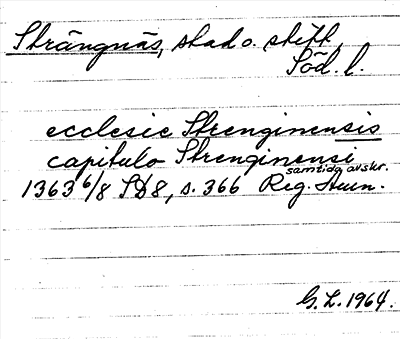 Strängnäs, stad o. stift.
Söd. l.
ecclesie Strenginensis
capitulo Strenginensi
samtida avskr.
1363 6/8 SD8, s. 366 Reg. Huin.
G. L. 1964.